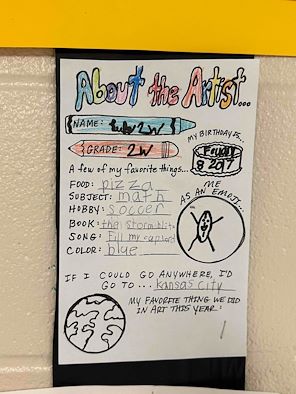 About the Artist...
NAME: 2W
MY BIRTHDAY IS...
8 2017
GRADE: 2W
A few of my favorite things...
FOOD: pizza
SUBJECT: math
HOBBY: soccer
BOOK: the
SONG: Fill my
COLOR: blue
ME
AS AN EMOJI...
IF I COULD GO ANYWHERE, I'D
GO TO... Kansas City
MY FAVORITE THING WE DID
IN ART THIS YEAR: